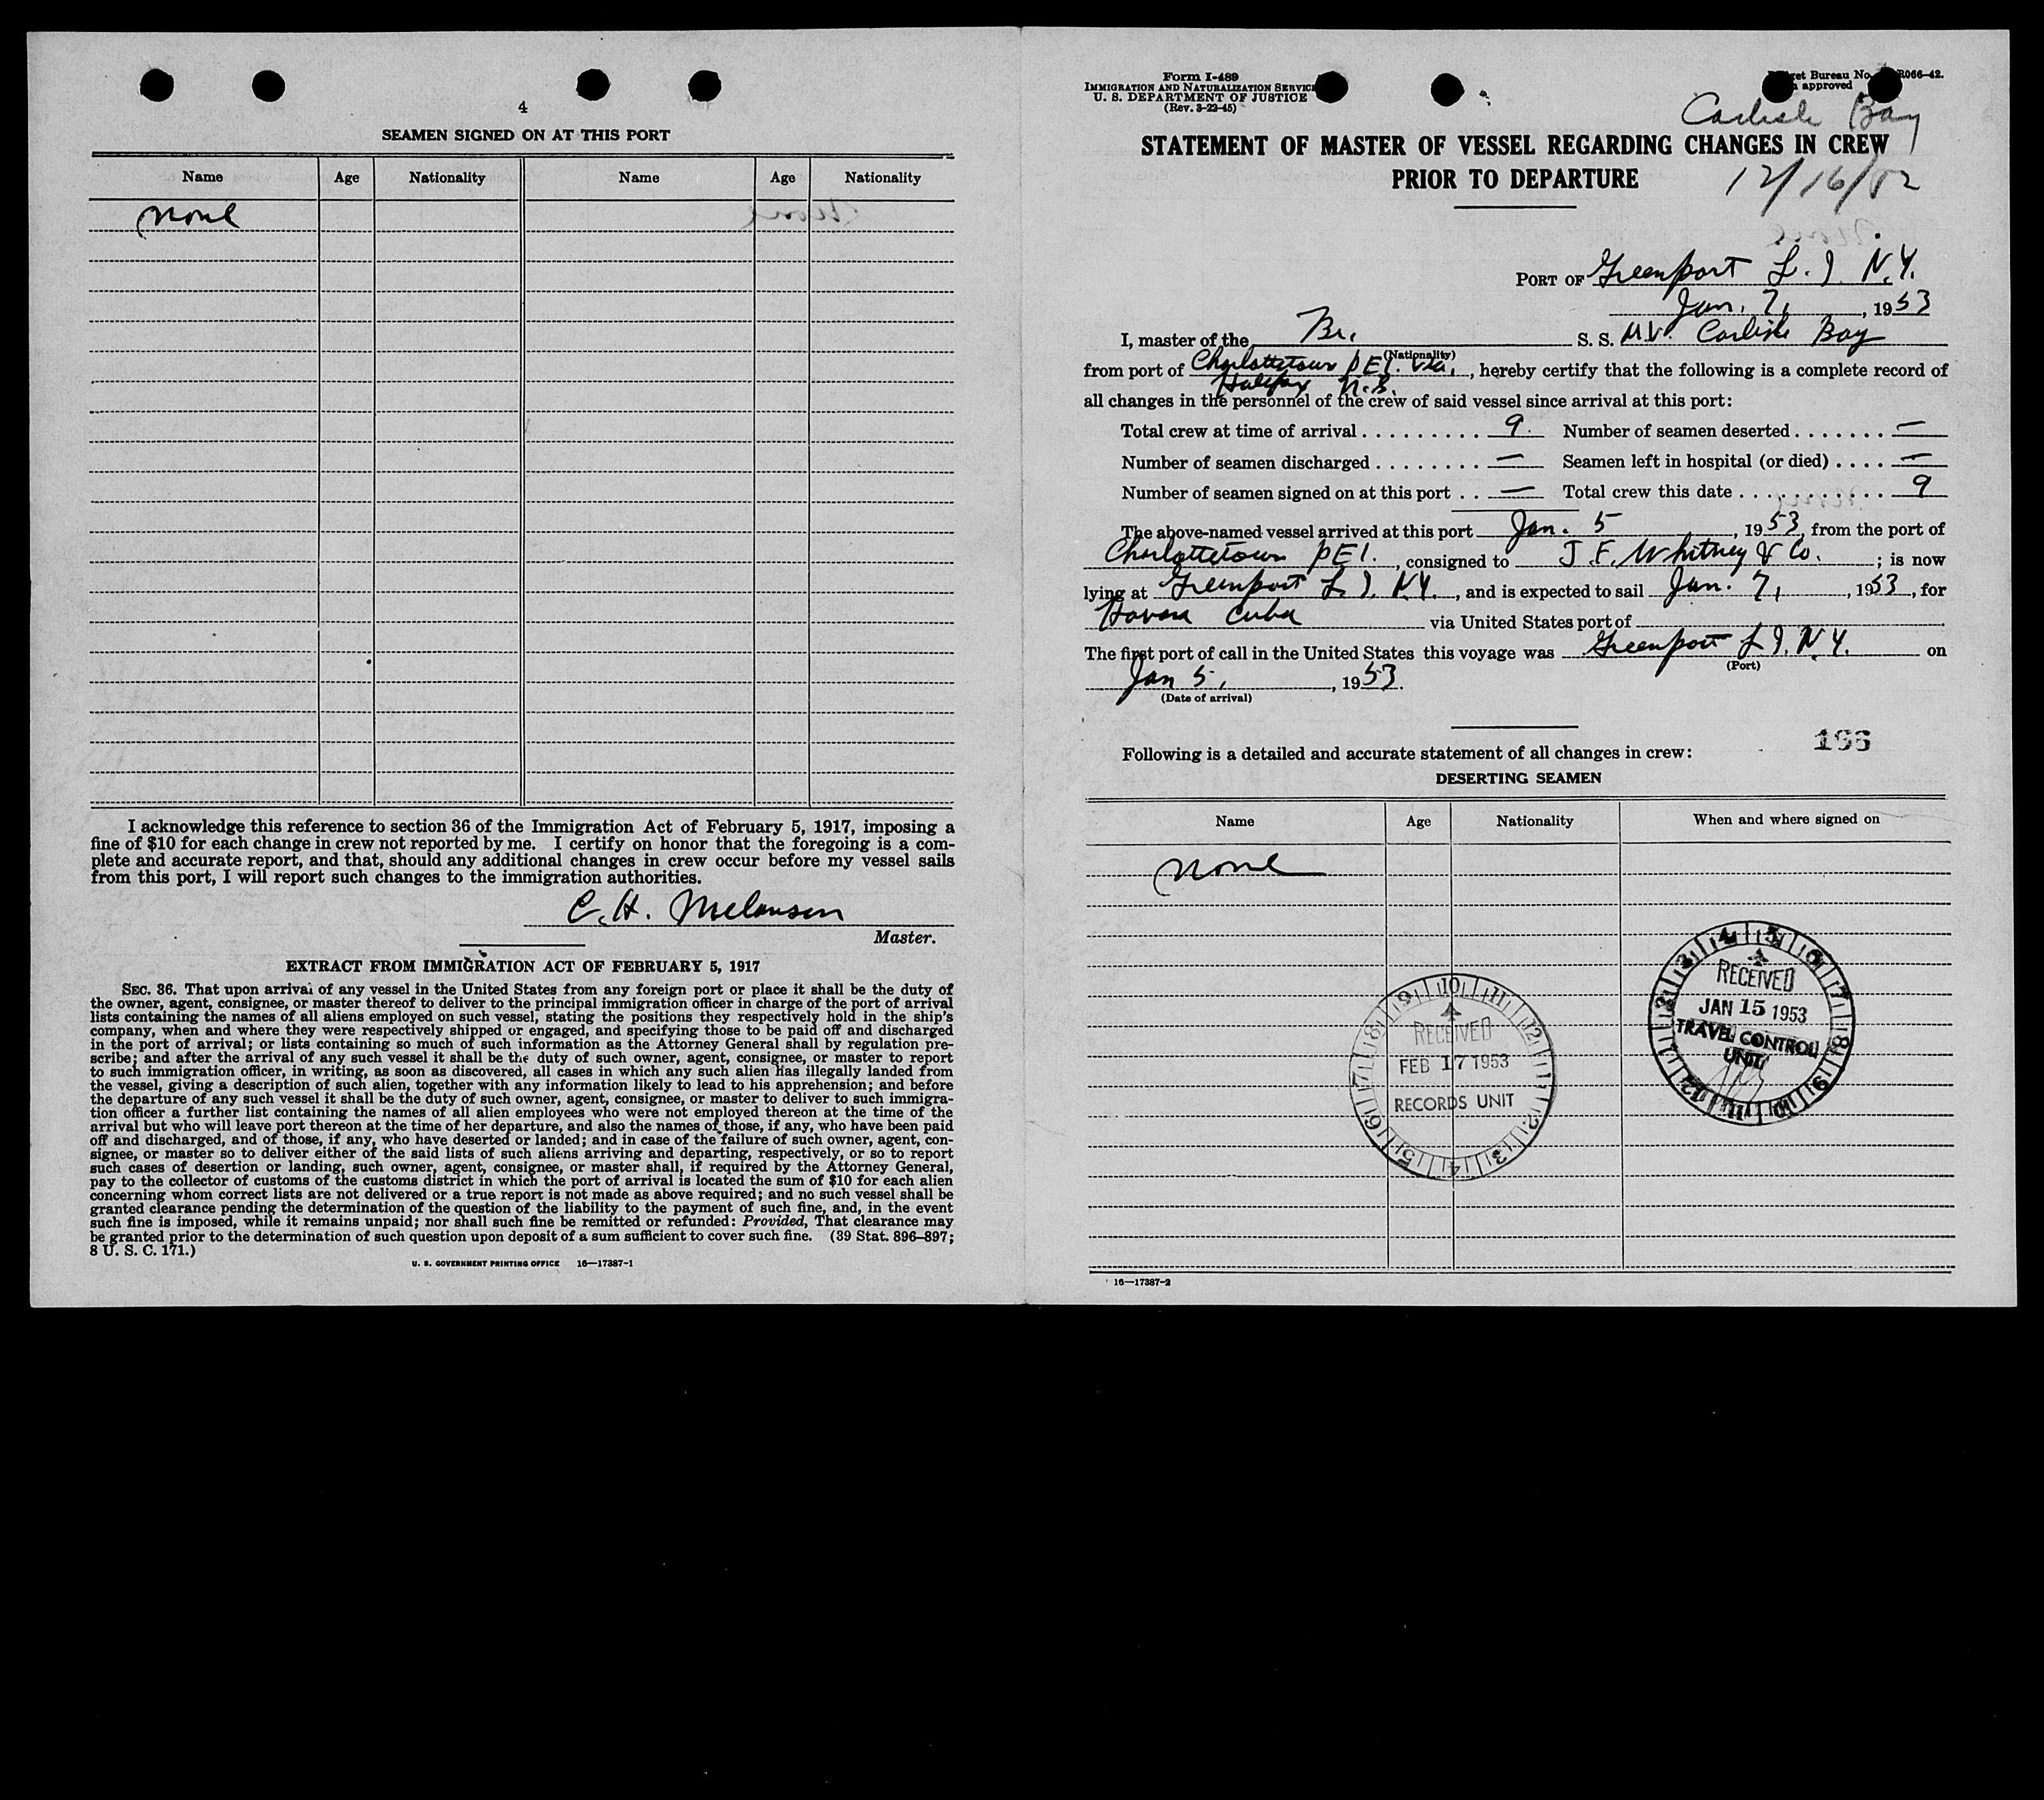 4
SEAMEN SIGNED ON AT THIS PORT
Name Age Nationality Name Age Nationality
None
I acknowledge this reference to section 36 of the Immigration Act of February 5, 1917, imposing a
fine of $10 for each change in crew not reported by me. I certify on honor that the foregoing is a com-
plete and accurate report, and that, should any additional changes in crew occur before my vessel sails
from this port, I will report such changes to the immigration authorities.
C. H. Melansen
Master.
EXTRACT FROM IMMIGRATION ACT OF FEBRUARY 5, 1917
SEC. 36. That upon arrival of any vessel in the United States from any foreign port or place it shall be the duty of
the owner, agent, consignee, or master thereof to deliver to the principal immigration officer in charge of the port of arrival
lists containing the names of all aliens employed on such vessel, stating the positions they respectively hold in the ship's
company, when and where they were respectively shipped or engaged, and specifying those to be paid off and discharged
in the port of arrival; or lists containing so much of such information as the Attorney General shall by regulation pre-
scribe; and after the arrival of any such vessel it shall be the duty of such owner, agent, consignee, or master to report
to such immigration officer, in writing, as soon as discovered, all cases in which any such alien has illegally landed from
the vessel, giving a description of such alien, together with any information likely to lead to his apprehension; and before
the departure of any such vessel it shall be the duty of such owner, agent, consignee, or master to deliver to such immigra-
tion officer a further list containing the names of all alien employees who were not employed thereon at the time of the
arrival but who will leave port thereon at the time of her departure, and also the names of those, if any, who have been paid
off and discharged, and of those, if any, who have deserted or landed; and in case of the failure of such owner, agent, con-
signee, or master so to deliver either of the said lists of such aliens arriving and departing, respectively, or so to report
such cases of desertion or landing, such owner, agent, consignee, or master shall, if required by the Attorney General,
pay to the collector of customs of the customs district in which the port of arrival is located the sum of $10 for each alien
concerning whom correct lists are not delivered or a true report is not made as above required; and no such vessel shall be
granted clearance pending the determination of the question of the liability to the payment of such fine, and, in the event
such fine is imposed, while it remains unpaid; nor shall such fine be remitted or refunded: Provided, That clearance may
be granted prior to the determination of such question upon deposit of a sum sufficient to cover such fine. (39 Stat. 896–897;
8 U. S. C. 171.)
U. S. GOVERNMENT PRINTING OFFICE 16—17387-1
Form I-489
IMMIGRATION AND NATURALIZATION SERVICE
U. S. DEPARTMENT OF JUSTICE
(Rev. 3-22-45)
Bureau No. R066–42.
approved
Carlisle Bay
STATEMENT OF MASTER OF VESSEL REGARDING CHANGES IN CREW
PRIOR TO DEPARTURE
12/16/52
PORT OF Greenport L. I. N.Y.
Jan. 7, , 1953
I, master of the Br. S. S. M.V. Carlisle Bay
(Nationality)
from port of Charlottetown P E I. via , hereby certify that the following is a complete record of
Halifax N.S.
all changes in the personnel of the crew of said vessel since arrival at this port:
Total crew at time of arrival . . . . . . . . . . 9. Number of seamen deserted . . . . . . . —
Number of seamen discharged . . . . . . . . — Seamen left in hospital (or died) . . . . —
Number of seamen signed on at this port . . — Total crew this date . . . . . . . . . . . . 9
The above-named vessel arrived at this port Jan. 5 , 1953, from the port of
Charlottetown P E I. , consigned to J. F. Whitney & Co. ; is now
lying at Greenport L. I. N.Y. , and is expected to sail Jan. 7, , 1953, for
Havana Cuba via United States port of
The first port of call in the United States this voyage was Greenport L I. N.Y. on
(Port)
Jan 5, , 1953.
(Date of arrival)
196
Following is a detailed and accurate statement of all changes in crew:
DESERTING SEAMEN
Name Age Nationality When and where signed on
None
4 5 6 7 8 9 10 11 12 1 2 3
RECEIVED
JAN 15 1953
TRAVEL CONTROL
UNIT
10 11 12 1 2 3 4 5 6 7 8 9
RECEIVED
FEB 17 1953
RECORDS UNIT
16—17387-2